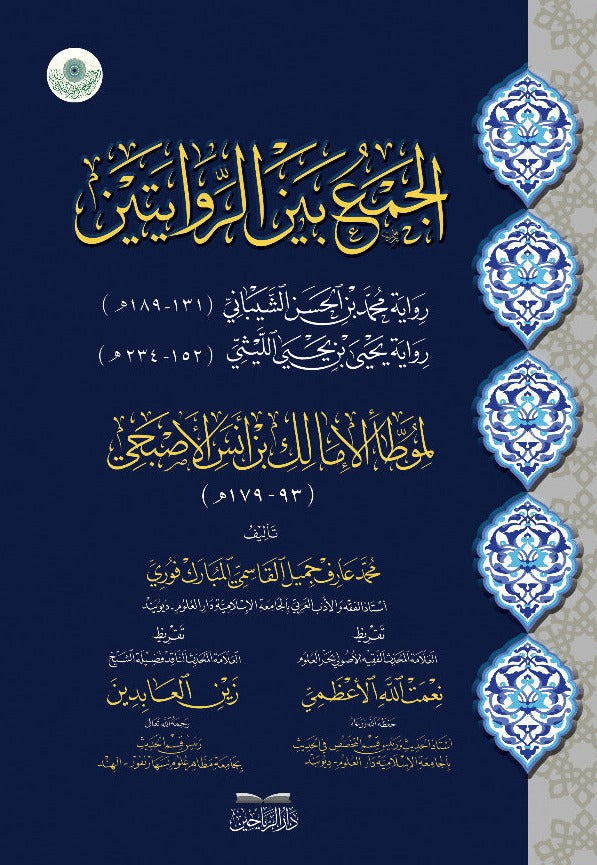 الجمع بين الروايتين
رواية محمد بن الحسن الشيباني (١٣١-١٨٩هـ)
رواية يحيى بن يحيى الليثي (١٥٢-٢٣٤هـ)
لموطأ الإمام مالك بن أنس الأصبحي
(٩٣-١٧٩هـ)
تأليف
محمد عارف جميل القاسمي المبارك فوري
أستاذ الفقه والأدب العربي بالجامعة الإسلامية دار العلوم - ديوبند
تقريظ
العلامة المحدث الفقيه الأصولي بحر العلوم
نعمت الله الأعظمي
حفظه الله ورعاه
أستاذ الحديث ورئيس قسم التخصص في الحديث
بالجامعة الإسلامية دار العلوم - ديوبند
تقريظ
العلامة المحدث الناقد فضيلة الشيخ
زين العابدين
رحمه الله تعالى
رئيس قسم الحديث
بجامعة مظاهر علوم سهارنفور - الهند
دار الرياحين